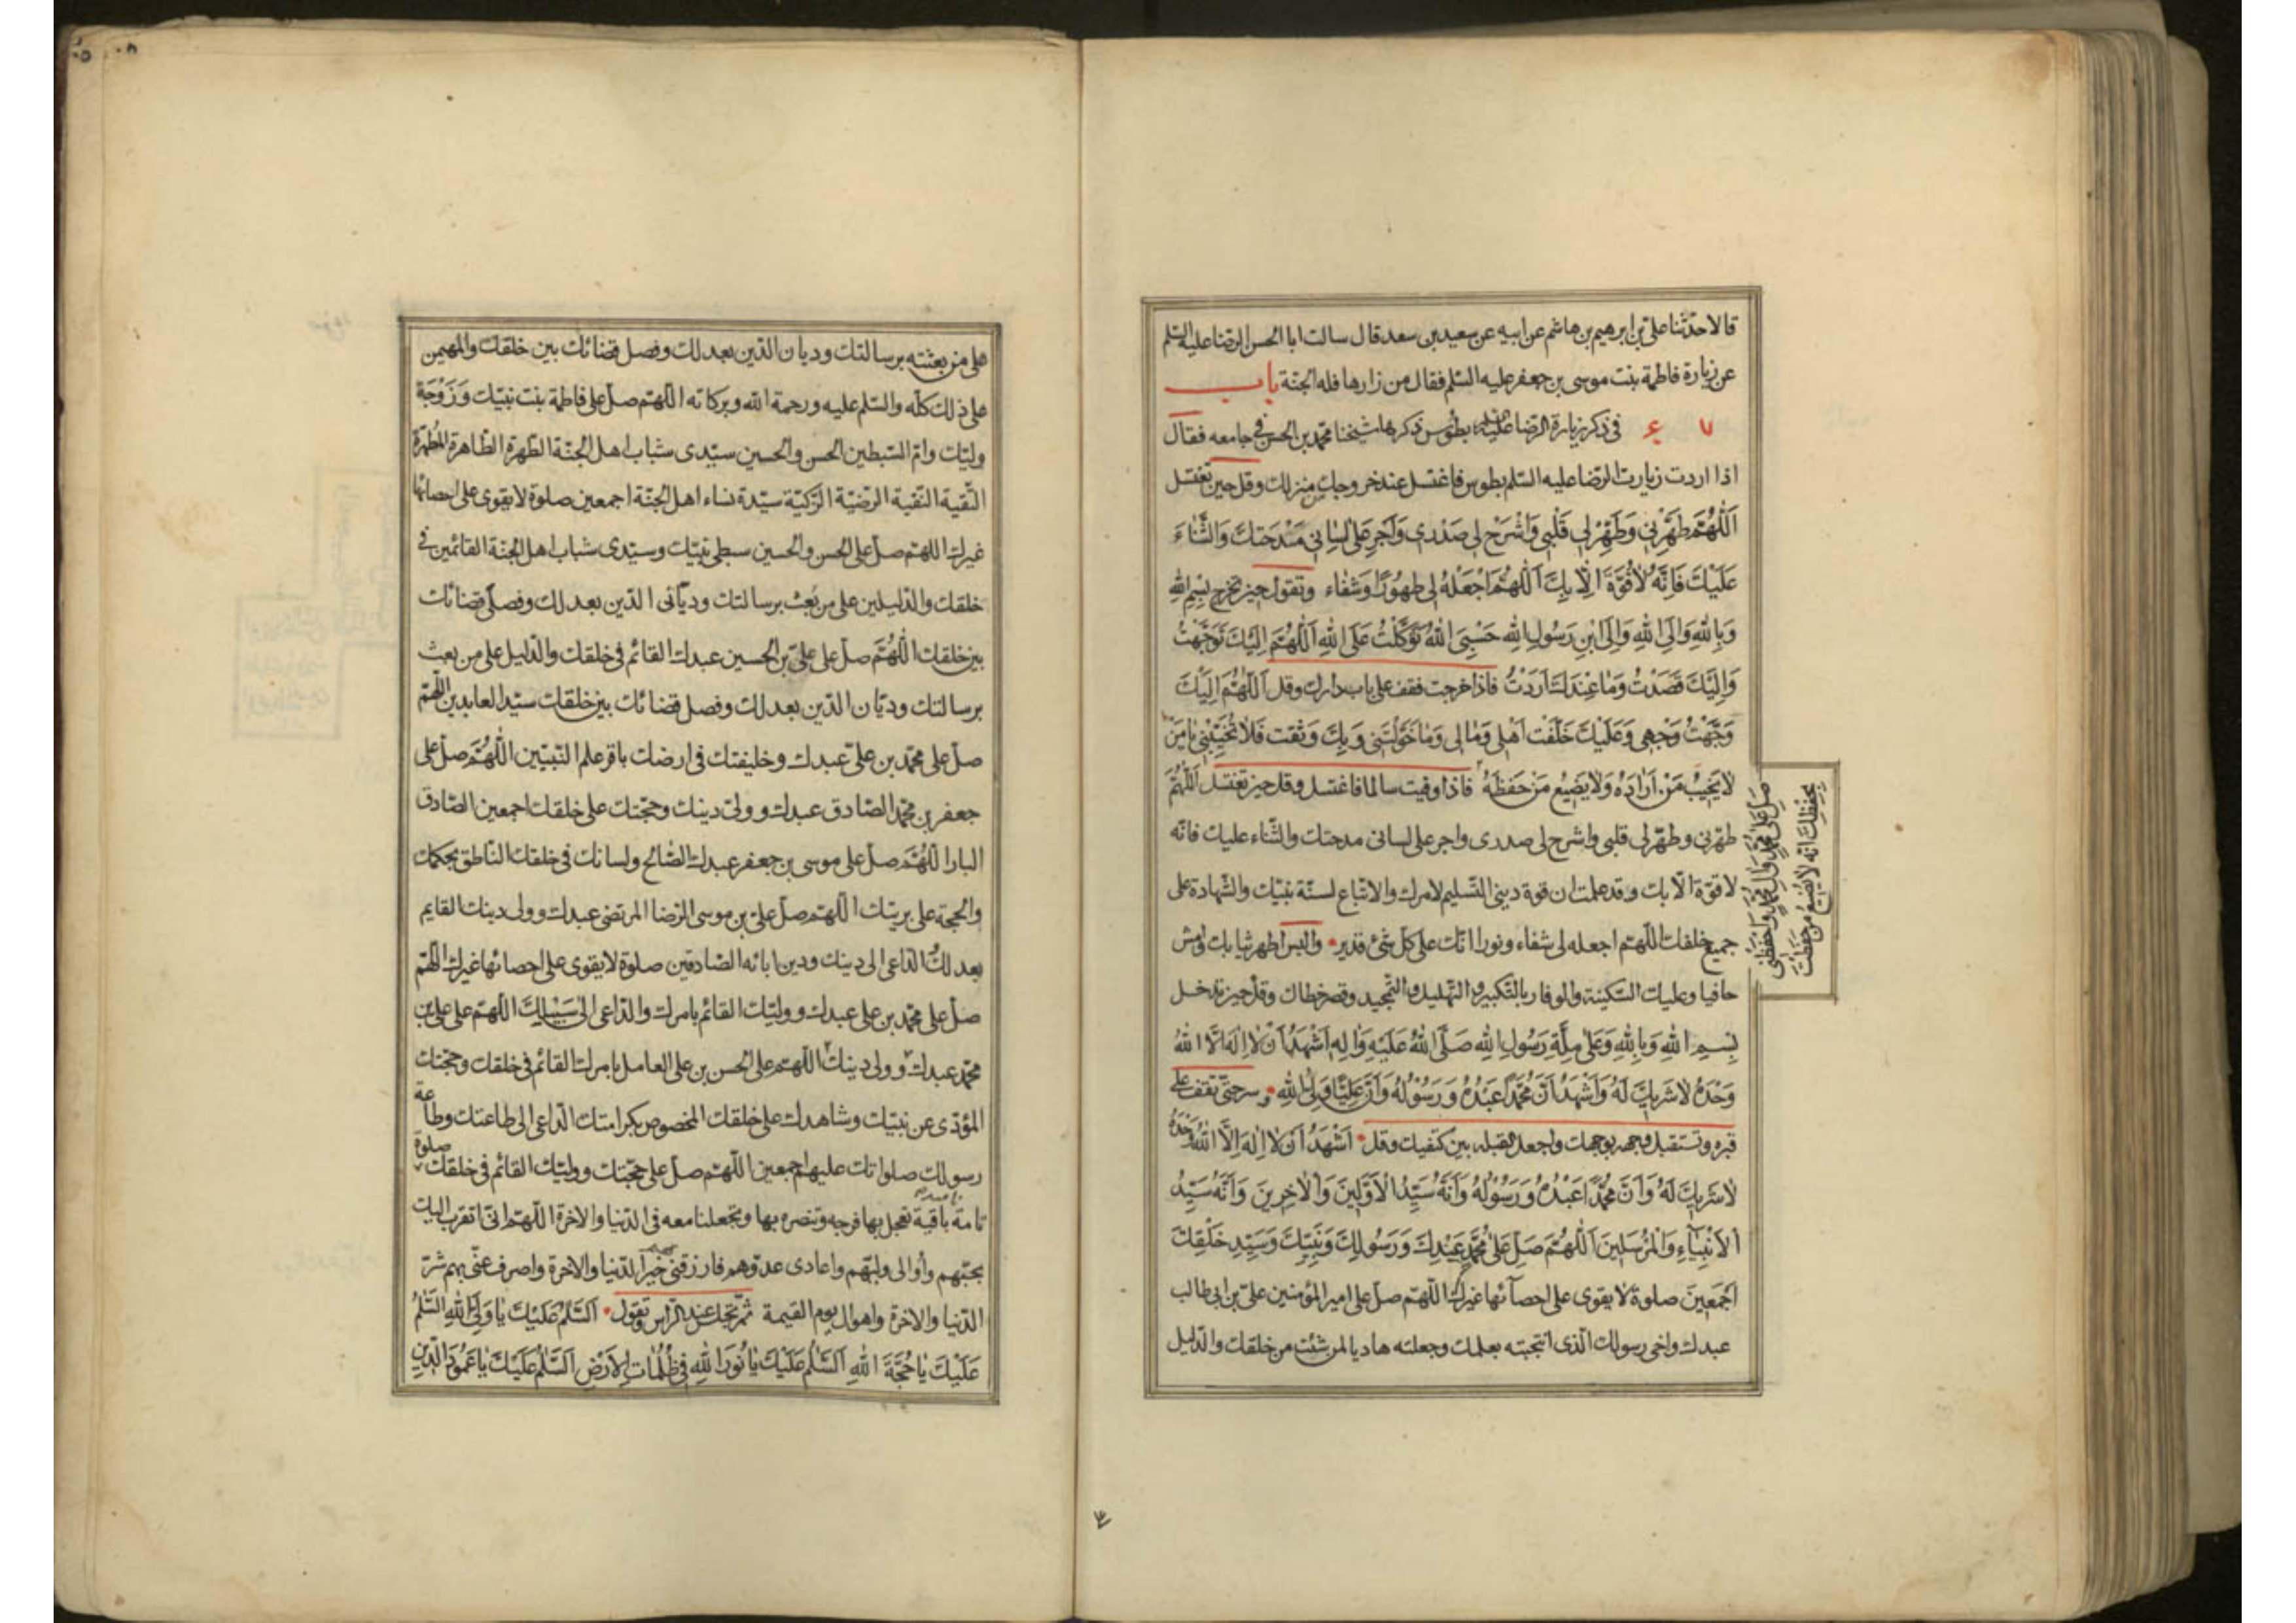 قالا حدّثنا علیّ بن ابرهیم بن هاشم عن ابیه عن سعید بن سعد قال سالت ابا الحسن الرّضا علیه السّلم
عن زیارة فاطمة بنت موسی بن جعفر علیه السّلم فقال من زارها فله الجنّة باب
فی ذکر زیارة الرّضا علیه بطوس ذکرها شیخنا محمّد بن الحسن فی جامعه فقال
اذا اردت زیارت الرّضا علیه السّلم بطوس فاغتسل عند خروجك من منزلك وقل حین تغتسل
اَللّهُمَّ طَهِّرْنی وَطَهِّرْ لی قَلْبی وَاشْرَحْ لی صَدْری وَاَجْرِ عَلٰی لِسٰانی مِدْحَتَكَ وَالثَّنٰاءَ
عَلَیْكَ فَاِنَّهُ لٰا قُوَّةَ اِلّٰا بِكَ اَللّهُمَّ اجْعَلْهُ لی طَهُورًا وَشِفٰاء وتقول حین تخرج بِسْمِ اللهِ
وَبِاللهِ وَاِلَی اللهِ وَاِلَی ابْنِ رَسُولِ اللهِ حَسْبِیَ اللهُ تَوَکَّلْتُ عَلَی اللهِ اَللّهُمَّ اِلَیْكَ تَوَجَّهْتُ
وَاِلَیْكَ قَصَدْتُ وَمٰا عِنْدَكَ اَرَدْتُ فاذا خرجت فقف علی باب دارك وقل اَللّهُمَّ اِلَیْكَ
وَجَّهْتُ وَجْهی وَعَلَیْكَ خَلَّفْت اَهْلی وَمٰالی وَمٰا خَوَّلْتَنی وَبِكَ وَثِقْت فَلٰا تُخَیِّبْنی یٰا مَنْ
لٰا یُخَیِّبُ مَنْ اَرٰادَهُ وَلٰا یُضَیِّعُ مَنْ حَفِظَهُ فاذا وفیت سالما فاغتسل وقل حین تغتسل اَللّهُمَّ
صَلِّ عَلٰی مُحَمَّدٍ وَاٰلِ مُحَمَّدٍ وَاحْفَظْنی
بِحِفْظِكَ اِنَّهُ لٰا یَضیعُ مَنْ حَفِظْتَ
طهّرنی وطهّر لی قلبی واشرح لی صدری واجر علی لسانی مدحتك والثّناء علیك فانّه
لا قوّة الّا بك وقد علمت ان قوة دینی التّسلیم لامرك والاتّباع لسنّة نبیّك والشّهادة علی
جمیع خلقك اللّهم اجعله لی شفاء ونورا انّك علی کلّ شیء قدیر والبس اطهر ثیابك وامش
حافیا وعلیك السّکینة والوقار بالتّکبیر والتّهلیل والتّمجید وقصر خطاك وقل حین تدخل
بِسْمِ اللهِ وَبِاللهِ وَعَلٰی مِلَّةِ رَسُولِ اللهِ صَلَّی اللهُ عَلَیْهِ وَاٰلِهِ اَشْهَدُ اَنْ لٰا اِلٰهَ اِلَّا اللهُ
وَحْدَهُ لٰا شَریكَ لَهُ وَاَشْهَدُ اَنَّ مُحَمَّدًا عَبْدُهُ وَرَسُولُهُ وَاَنَّ عَلِیًّا وَلِیُّ اللهِ وسر حتّی تقف علی
قبره وتستقبل وجهه بوجهك واجعل القبلة بین کتفیك وقل اَشْهَدُ اَنْ لٰا اِلٰهَ اِلَّا اللهُ وَحْدَهُ
لٰا شَریكَ لَهُ وَاَنَّ مُحَمَّدًا عَبْدُهُ وَرَسُولُهُ وَاَنَّهُ سَیِّدُ الْاَوَّلینَ وَالْاٰخِرینَ وَاَنَّهُ سَیِّدُ
الْاَنْبِیٰاءِ وَالْمُرْسَلینَ اَللّهُمَّ صَلِّ عَلٰی مُحَمَّدٍ عَبْدِكَ وَرَسُولِكَ وَنَبِیِّكَ وَسَیِّدِ خَلْقِكَ
اَجْمَعینَ صلوة لا یقوی علی احصآئها غیرك اللّهمّ صلّ علی امیر المؤمنین علیّ بن ابی طالب
عبدك واخی رسولك الّذی انتجبته بعلمك وجعلته هادیا لمن شئت من خلقك والدّلیل
علی من بعثته برسالتك ودیان الدّین بعدلك وفصل قضائك بین خلقك والمهیمن
علی ذلك کلّه والسّلم علیه ورحمة الله وبرکاته اللّهمّ صلّ علی فاطمة بنت نبیّك وَزَوْجَة
ولیّك وامّ السّبطین الحسن والحسین سیّدی شباب اهل الجنّة الطّهرة الطّاهرة المطهّرة
التّقیة النّقیة الرّضیّة الزّکیّة سیّدة نساء اهل الجنّة اجمعین صلوة لا یقوی علی احصائها
غیرك اللهمّ صلّ علی الحسن والحسین سبطی نبیّك وسیّدی شباب اهل الجنّة القائمین فی
خلقك والدّلیلین علی من بعث برسالتك ودیّانی الدّین بعدلك وفصلی قضائك
بین خلقك اللّهُمَّ صلّ علی علیّ بن الحسین عبدك القائم فی خلقك والدّلیل علی من بعث
برسالتك ودیّان الدّین بعدلك وفصل قضائك بین خلقك سیّد العابدین اللّهمّ
صلّ علی محمّد بن علیّ عبدك وخلیفتك فی ارضك باقر علم النّبیّین اللّهُمَّ صلّ علی
جعفر بن محمّد الصّادق عبدك وولیّ دینك وحجّتك علی خلقك اجمعین الصّادق
البار اللّهُمَّ صلّ علی موسی بن جعفر عبدك الصّالح ولسانك فی خلقك النّاطق بحکمك
والحجة علی بریّتك اللّهمّ صلّ علیّ بن موسی الرّضا المرتضی عبدك وولی دینك القایم
بعدلك الدّاعی الی دینك ودین ابائه الصّادقین صلوة لا یقوی علی احصائها غیرك اللّهمّ
صلّ علی محمّد بن علی عبدك وولیّك القائم بامرك والدّاعی الی سَبیلِكَ اللّهمّ علی علی بن
محمّد عبدك وولی دینك اللّهمّ علی الحسن بن علی العامل بامرك القائم فی خلقك وحجّتك
المؤدّی عن نبیّك وشاهدك علی خلقك المخصوص بکرامتك الدّاعی الی طاعتك وطاعة
رسولك صلواتك علیهم اجمعین اللّهمّ صلّ علی حجّتك وولیّك القائم فی خلقك صلوة
تامة باقیة تعجل بها فرجه وتنصره بها وتجعلنا معه فی الدّنیا والاخرة اللّهمّ انّی اتقرب الیك
بحبّهم واُوالی ولیّهم واعادی عدوّهم فارزقنی خیر الدّنیا والاخرة واصرف عنّی بهم شرّ
الدّنیا والاخرة واهوال یوم القیمة ثمّ تجلس عند الرّاس وتقول اَلسَّلٰمُ عَلَیْكَ یٰا وَلِیَّ اللهِ اَلسَّلٰمُ
عَلَیْكَ یٰا حُجَّةَ اللهِ اَلسَّلٰمُ عَلَیْكَ یٰا نُورَ اللهِ فی ظُلُمٰاتِ الْاَرْضِ اَلسَّلٰمُ عَلَیْكَ یٰا عَمُودَ الدّینِ